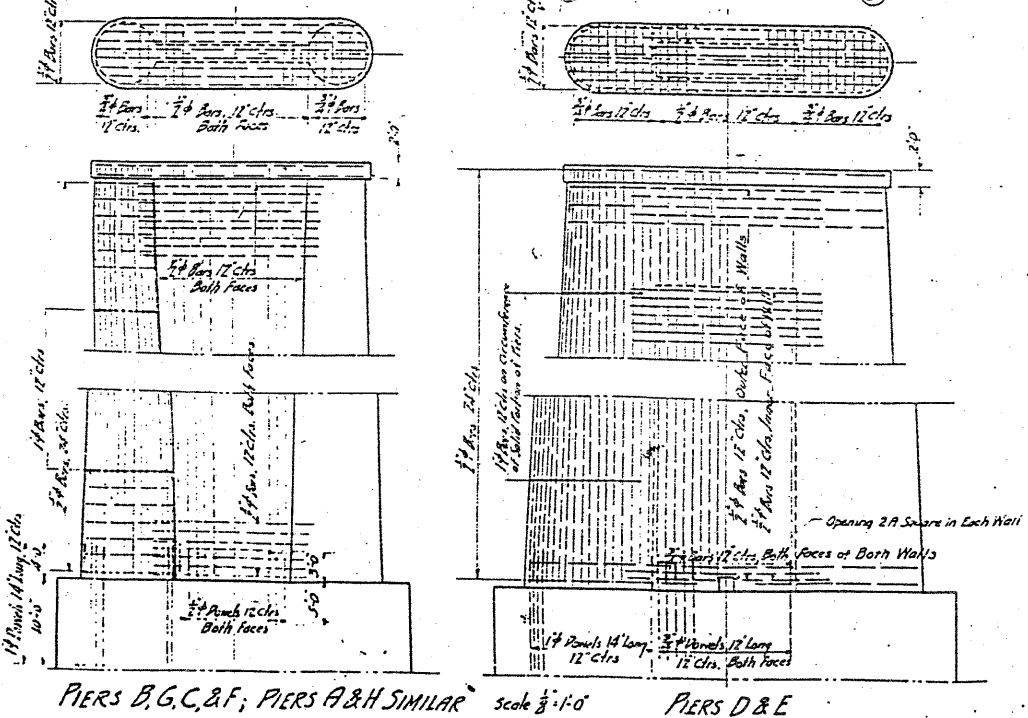 ½"ϕ Bars 12"Ctrs
¾"ϕ Bars
12"Ctrs.
½"ϕ Bars, 12"Ctrs.
Both Faces
¾"ϕ Bars
12"Ctrs
2'-0"
½"ϕ Bars 12"Ctrs
Both Faces
1"ϕ Bars, 12"Ctrs
½"ϕ Bars, 24"Ctrs.
½"ϕ Bars, 12"Ctrs. Both Faces
1"ϕ Dowels 14' Long, 12"Ctrs
4'-0"
10'-0"
3'-0"
5'-0"
½"ϕ Dowels 12"Ctrs
Both Faces
PIERS B, G, C, & F; PIERS A & H SIMILAR
Scale ⅛"=1'-0"
½"ϕ Bars 12"Ctrs
¾"ϕ Bars 12"Ctrs
½"ϕ Bars 12"Ctrs
¾"ϕ Bars 12"Ctrs
2'-0"
½"ϕ Bars 24"Ctrs
1"ϕ Bars, 12"Ctrs on circumference
of Solid Portion of Piers.
½"ϕ Bars 12"Ctrs, Outer Face of Walls
½"ϕ Bars 12"Ctrs, Inner Face of Wall
Opening 2ft Square in Each Wall
Bars 12"Ctrs Both Faces of Both Walls
1"ϕ Dowels 14' Long
12"Ctrs
Dowels, 12' Long
12"Ctrs. Both Faces
PIERS D & E